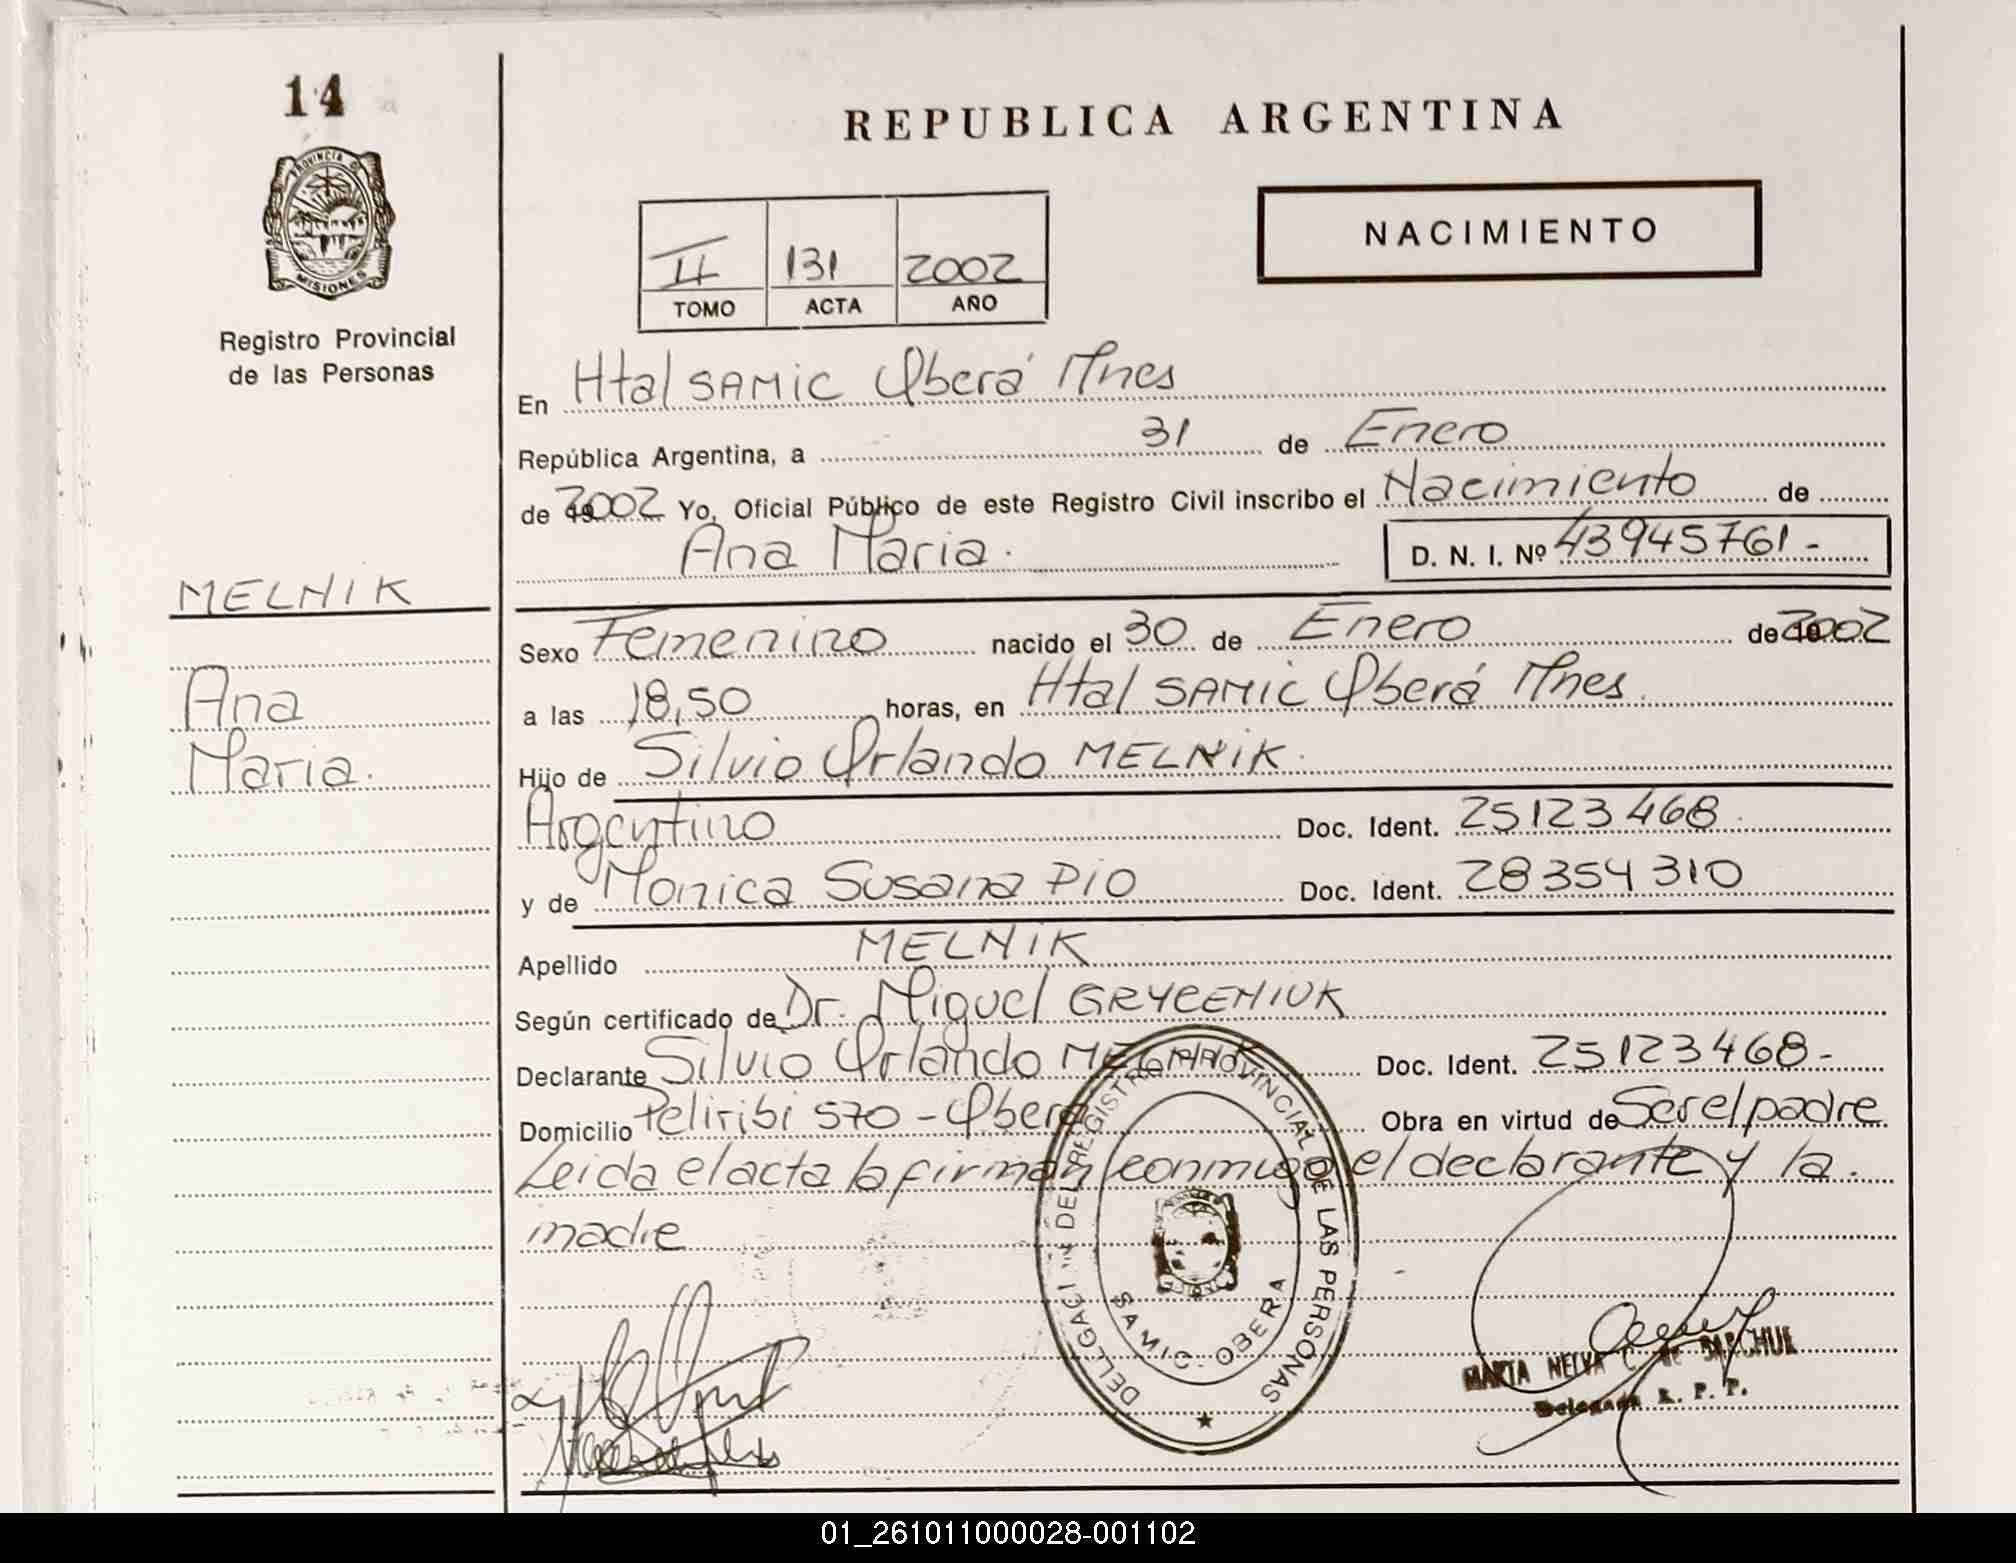 14
PROVINCIA DE
MISIONES
Registro Provincial
de las Personas
MELNIK
Ana
Maria.
REPUBLICA ARGENTINA
NACIMIENTO
II 131 2002
TOMO ACTA AÑO
En Htal SAMIC Oberá Mnes
República Argentina, a 31 de Enero
de 2002 Yo, Oficial Público de este Registro Civil inscribo el Nacimiento de
Ana Maria. D. N. I. Nº 43945761-
Sexo Femenino nacido el 30 de Enero de 2002
a las 18,50 horas, en Htal SAMIC Oberá Mnes.
Hijo de Silvio Orlando MELNIK.
Argentino Doc. Ident. 25123468.
y de Monica Susana PIO Doc. Ident. 28354310
Apellido MELNIK
Según certificado de Dr. Miguel GRYCENIUK
Declarante Silvio Orlando MELNIK Doc. Ident. 25123468-
Domicilio Peliribi 570 - Obera Obra en virtud de Ser el padre
Leida el acta la firman conmigo el declarante y la.
madre
DELEGACIÓN DEL REGISTRO PROVINCIAL DE LAS PERSONAS
SAMIC. OBERA
MARTA NELVA C. de
Delegada R. P. P.
01_261011000028-001102